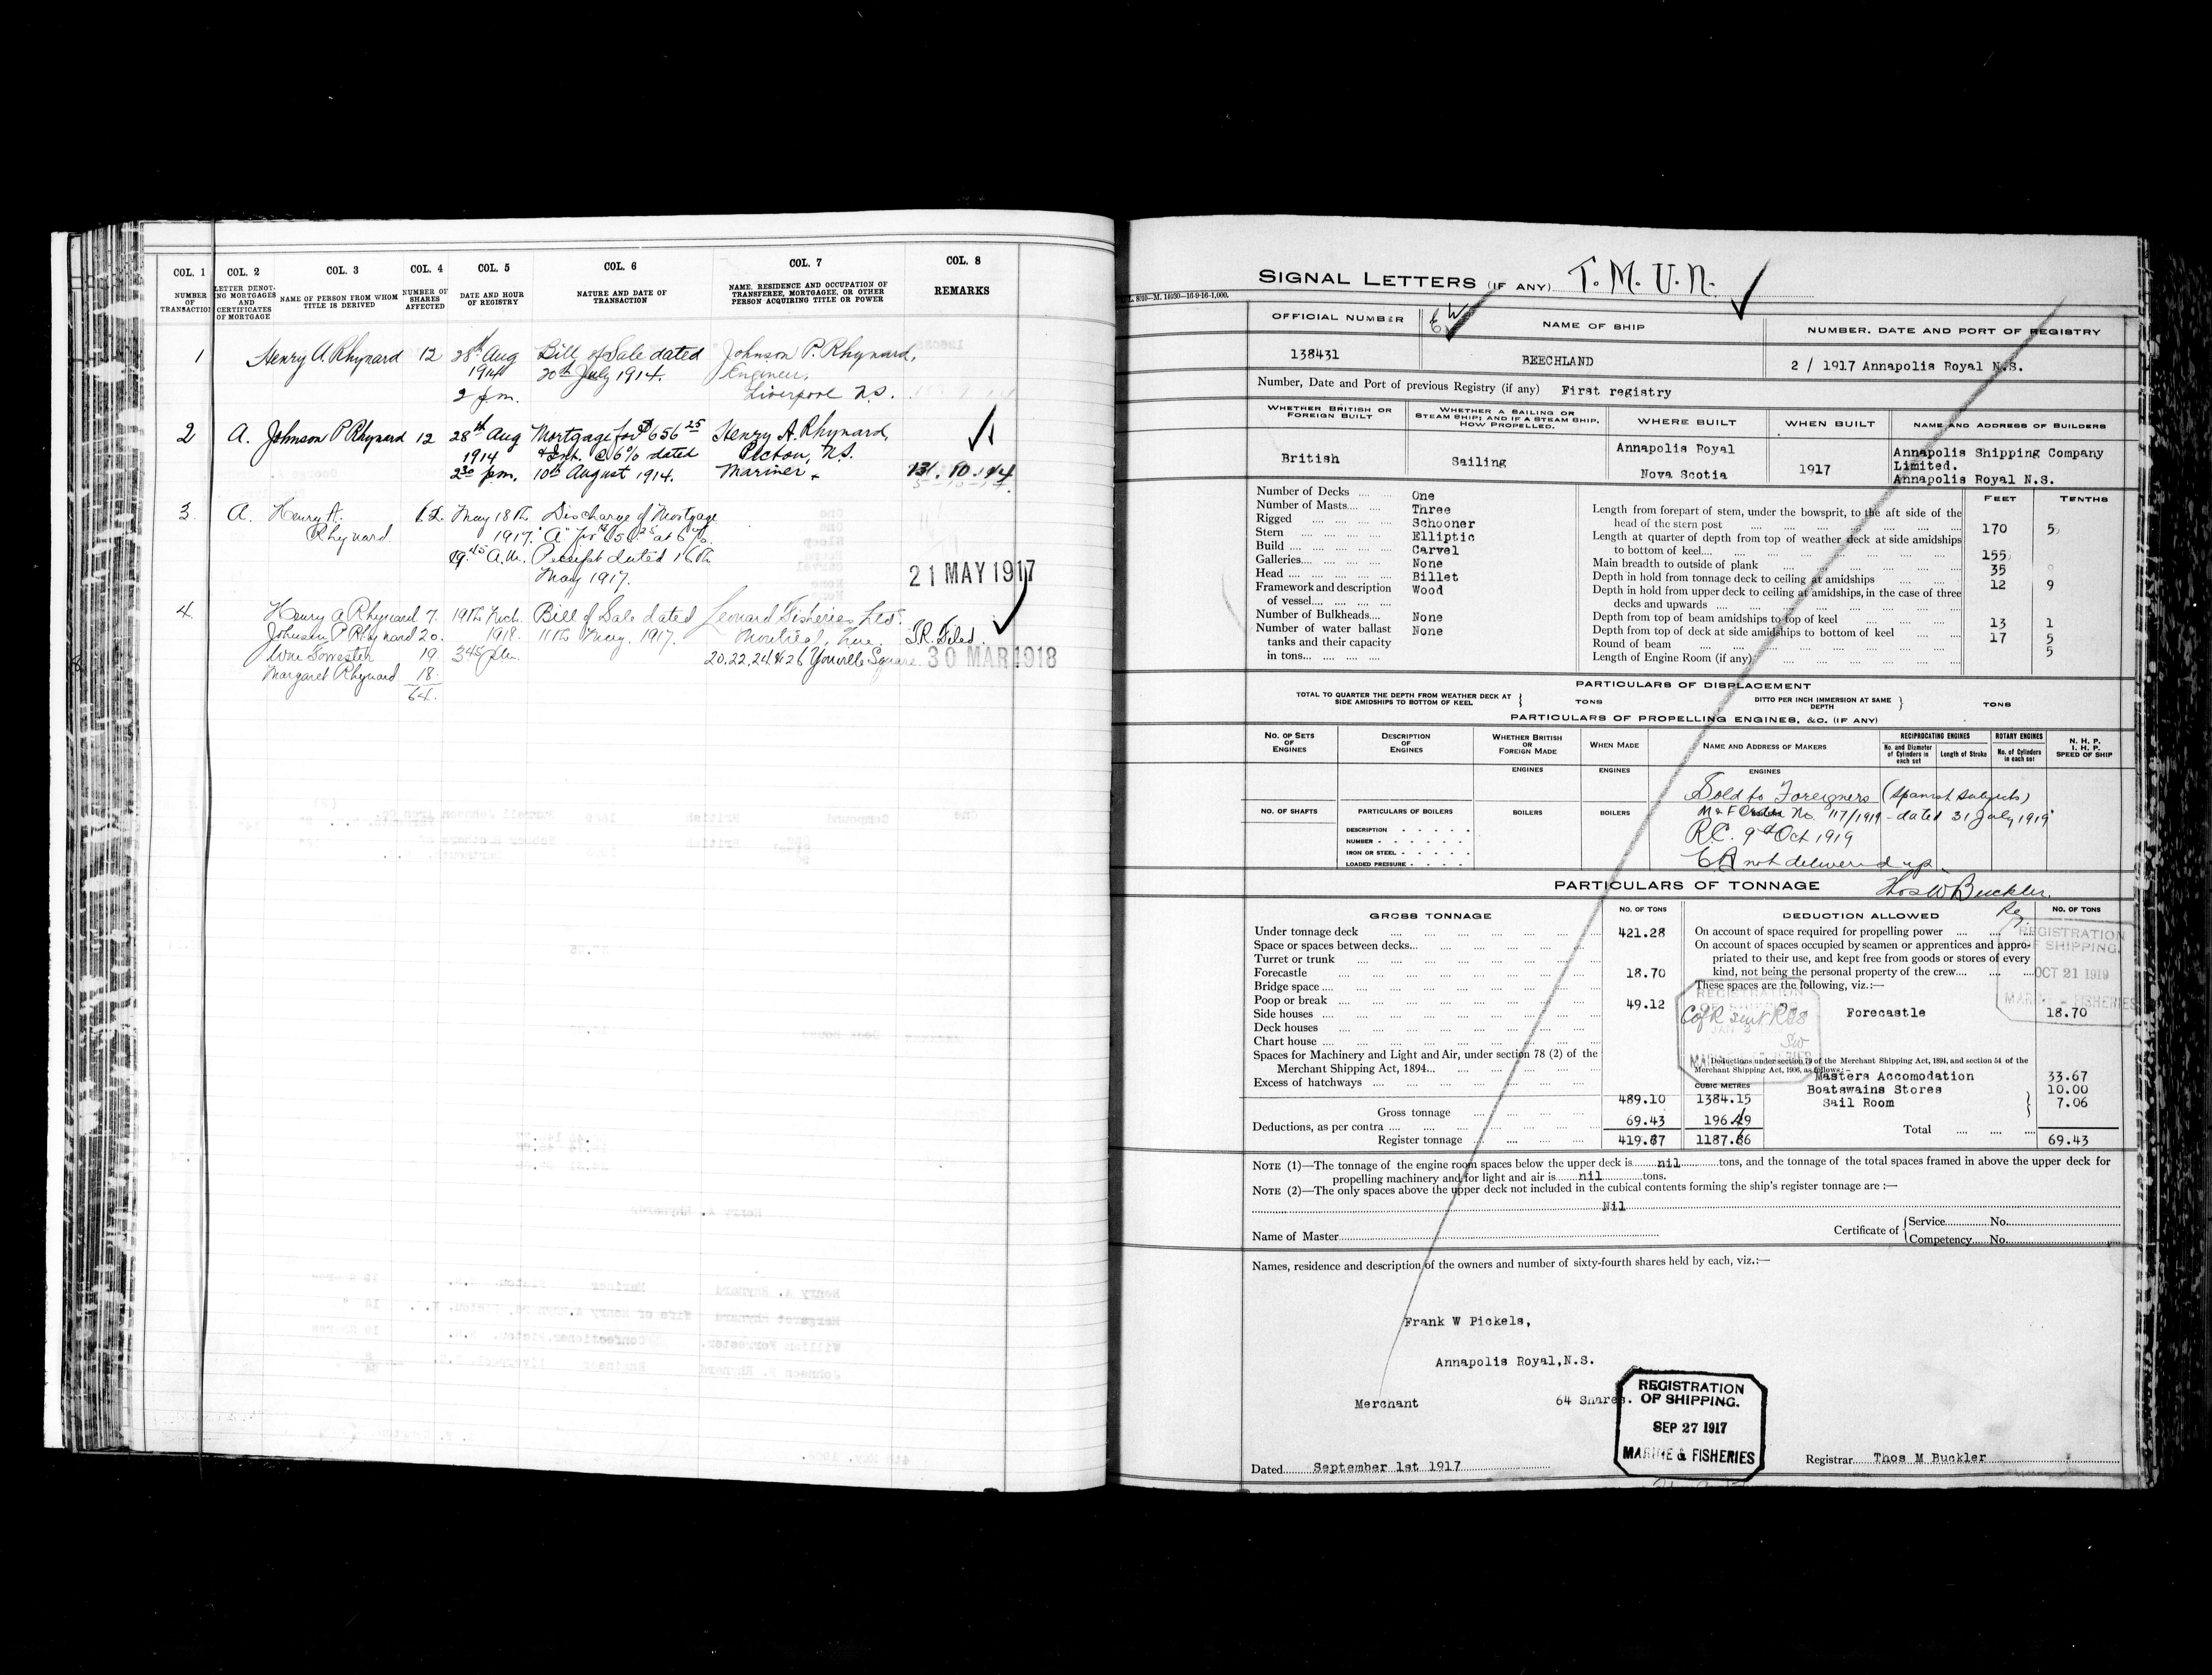 COL. 1 COL. 2 COL. 3 COL. 4 COL. 5 COL. 6 COL. 7 COL. 8
NUMBER OF TRANSACTION
LETTER DENOTING MORTGAGES AND CERTIFICATES OF MORTGAGE
NAME OF PERSON FROM WHOM TITLE IS DERIVED
NUMBER OF SHARES AFFECTED
DATE AND HOUR OF REGISTRY
NATURE AND DATE OF TRANSACTION
NAME, RESIDENCE AND OCCUPATION OF TRANSFEREE, MORTGAGEE, OR OTHER PERSON ACQUIRING TITLE OR POWER
REMARKS
1 Henry A. Rhynard 12 28th Aug Bill of Sale dated Johnson P. Rhynard,
1914 20th July 1914. Engineer,
2 pm. Liverpool N.S.
2 A. Johnson P Rhynard 12 28th Aug Mortgage for $656 25 Henry A. Rhynard,
1914 & Int. @ 6% dated Picton, N.S.
2 30 pm. 10th August 1914. Mariner
3 A. Henry A. 12. May 18th Discharge of Mortgage
Rhynard 1917. "A" for $656 25 at 6%.
9.45 A.M. Receipt dated 16th
May 1917.
21 MAY 1917
4. Henry A Rhynard 7. 19th Mch. Bill of Sale dated Leonard Fisheries Ltd.
Johnson P Rhynard 20. 1918. 11th May. 1917. Montreal, Que. T.R. Filed.
Wm Forrester 19. 3 45 p.m. 20.22.24 & 26 Youville Square.
30 MAR 1918
Margaret Rhynard 18.
64.
SIGNAL LETTERS (IF ANY) T. M. U. N.
8010—M. 14030—16-9-16-1,000.
OFFICIAL NUMBER NAME OF SHIP NUMBER, DATE AND PORT OF REGISTRY
138431 BEECHLAND 2 / 1917 Annapolis Royal N.S.
Number, Date and Port of previous Registry (if any) First registry
WHETHER BRITISH OR FOREIGN BUILT
WHETHER A SAILING OR STEAM SHIP; AND IF A STEAM SHIP, HOW PROPELLED.
WHERE BUILT WHEN BUILT NAME AND ADDRESS OF BUILDERS
British Sailing
Annapolis Royal
Nova Scotia
1917
Annapolis Shipping Company
Limited.
Annapolis Royal N.S.
Number of Decks One
Number of Masts Three
Rigged Schooner
Stern Elliptic
Build Carvel
Galleries None
Head Billet
Framework and description
of vessel Wood
Number of Bulkheads None
Number of water ballast None
tanks and their capacity
in tons
FEET TENTHS
Length from forepart of stem, under the bowsprit, to the aft side of the
head of the stern post 170 5
Length at quarter of depth from top of weather deck at side amidships
to bottom of keel 155
Main breadth to outside of plank 35
Depth in hold from tonnage deck to ceiling at amidships 12 9
Depth in hold from upper deck to ceiling at amidships, in the case of three
decks and upwards
Depth from top of beam amidships to top of keel 13 1
Depth from top of deck at side amidships to bottom of keel 17 5
Round of beam 5
Length of Engine Room (if any)
PARTICULARS OF DISPLACEMENT
TOTAL TO QUARTER THE DEPTH FROM WEATHER DECK AT SIDE AMIDSHIPS TO BOTTOM OF KEEL TONS
DITTO PER INCH IMMERSION AT SAME DEPTH TONS
PARTICULARS OF PROPELLING ENGINES, &C. (IF ANY)
No. OF SETS OF ENGINES
DESCRIPTION OF ENGINES
WHETHER BRITISH OR FOREIGN MADE
WHEN MADE
NAME AND ADDRESS OF MAKERS
RECIPROCATING ENGINES
No. and Diameter of Cylinders in each set
Length of Stroke
ROTARY ENGINES
No. of Cylinders in each set
N. H. P.
I. H. P.
SPEED OF SHIP
ENGINES ENGINES ENGINES
Sold to Foreigners (Spanish Subjects)
M & F Order No. 117/1919 - dated 31 July, 1919
R.C. 9th Oct 1919
CR not delivered up.
NO. OF SHAFTS PARTICULARS OF BOILERS BOILERS BOILERS
DESCRIPTION
NUMBER
IRON OR STEEL
LOADED PRESSURE
PARTICULARS OF TONNAGE
Thos W Buckler.
Reg.
GROSS TONNAGE NO. OF TONS DEDUCTION ALLOWED NO. OF TONS
Under tonnage deck 421.28
Space or spaces between decks
Turret or trunk
Forecastle 18.70
Bridge space
Poop or break 49.12
Side houses
Deck houses
Chart house
Spaces for Machinery and Light and Air, under section 78 (2) of the
Merchant Shipping Act, 1894
Excess of hatchways
CUBIC METRES
Gross tonnage 489.10 1384.15
Deductions, as per contra 69.43 196.49
Register tonnage 419.67 1187.66
On account of space required for propelling power
On account of spaces occupied by seamen or apprentices and appro-
priated to their use, and kept free from goods or stores of every
kind, not being the personal property of the crew
These spaces are the following, viz.:—
Forecastle 18.70
REGISTRATION
OF SHIPPING.
OCT 21 1919
MARINE - FISHERIES
REGISTRATION
Deductions under section 79 of the Merchant Shipping Act, 1894, and section 54 of the
Merchant Shipping Act, 1906, as follows:—
Masters Accomodation 33.67
Boatswains Stores 10.00
Sail Room 7.06
Total 69.43
NOTE (1)—The tonnage of the engine room spaces below the upper deck is nil tons, and the tonnage of the total spaces framed in above the upper deck for
propelling machinery and for light and air is nil tons.
NOTE (2)—The only spaces above the upper deck not included in the cubical contents forming the ship's register tonnage are :—
Nil
Name of Master
Certificate of Service No.
Competency No.
Names, residence and description of the owners and number of sixty-fourth shares held by each, viz.:—
Frank W Pickels,
Annapolis Royal,N.S.
Merchant 64 Shares.
REGISTRATION
OF SHIPPING.
SEP 27 1917
MARINE & FISHERIES
Dated September 1st 1917
Registrar Thos M Buckler